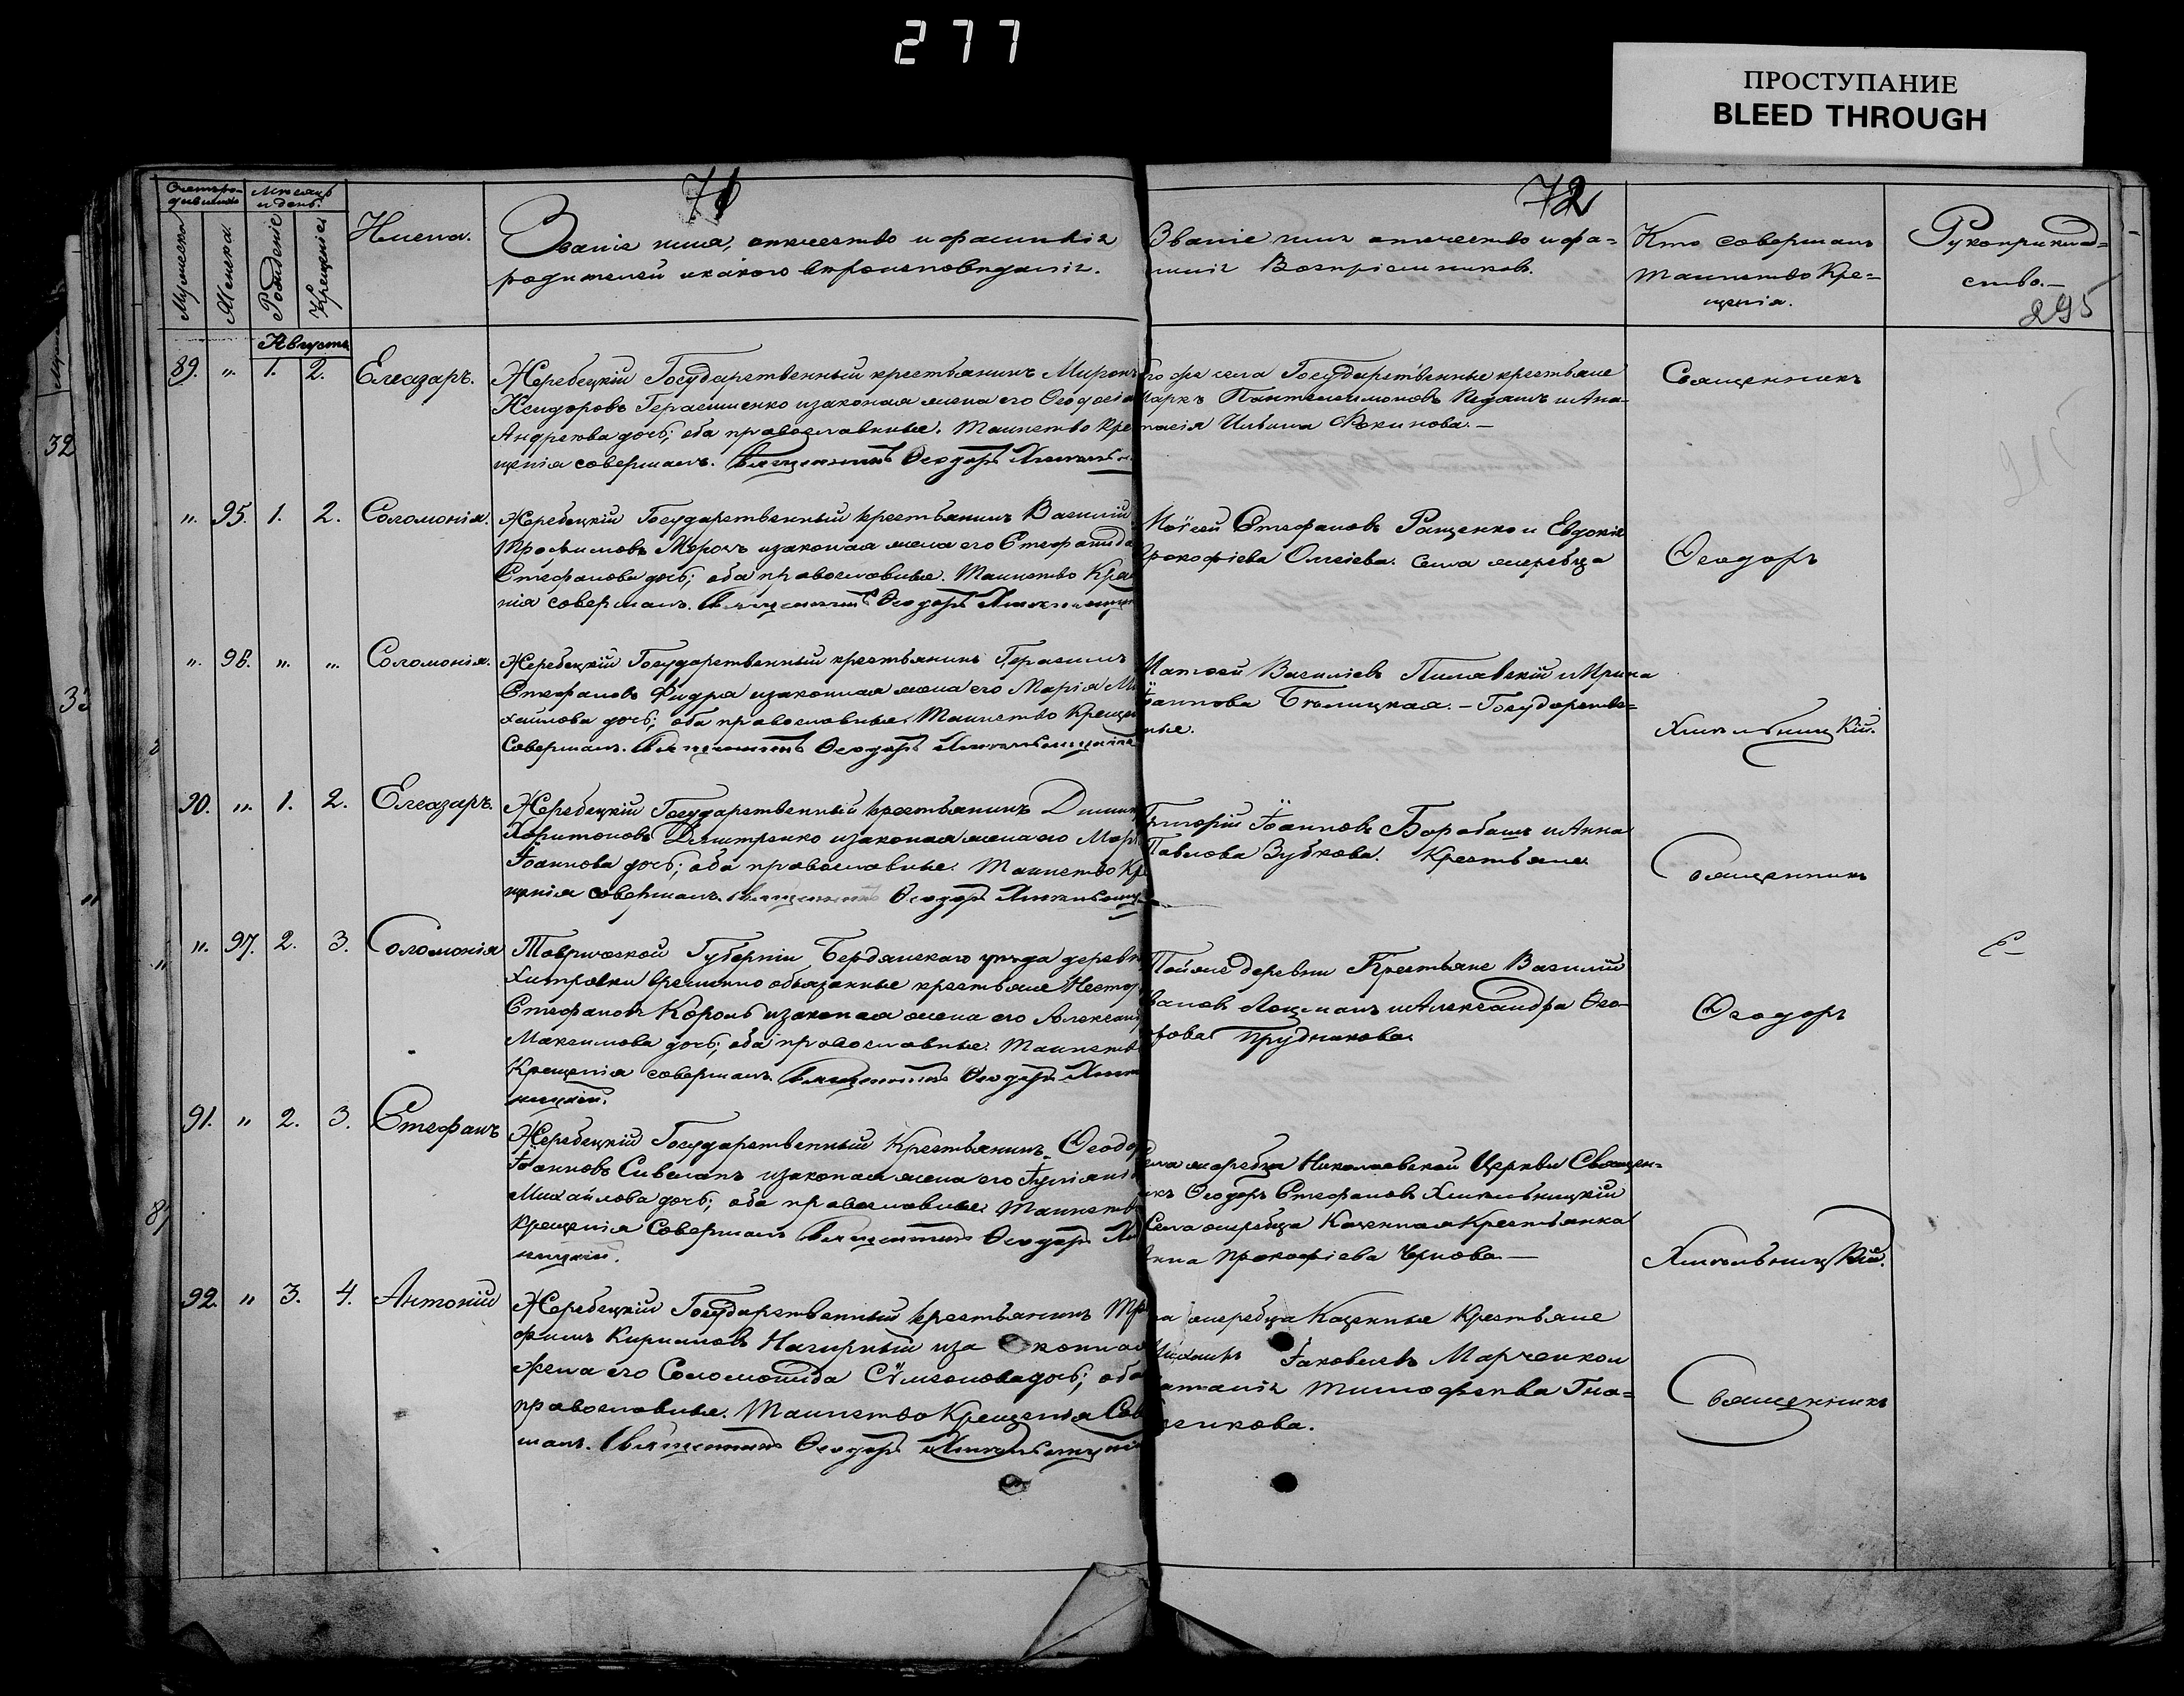 277
ПРОСТУПАНИЕ
BLEED THROUGH
71
72
295
Мѣсяцъ
и день.
Мужеска
Женска.
Рожденіе
Крещеніе
Имена.
Званіе имя, отчество и фамилія
родителей и какого вѣроисповѣданія.
Званіе имя отчество и фа=
милія Воспріемниковъ.
Кто совершалъ
таинство Кре=
щенія.
Рукоприклад=
ство.
Августъ
89. „ 1. 2. Елеазаръ.
Жеребецкій Государственный крестьянинъ Миронъ
Исидоровъ Герасименко и законая жена его Ѳеодосія
Андреева дочь; оба православные. Таинство кре
щенія совершалъ. Священникъ Ѳеодоръ
того же села Государственные крестьяне
Маркъ Пантелеимоновъ и Ана-
тасія Ильина Фокинова.—
Священникъ
„ 95. 1. 2. Соломонія.
Жеребецкій Государственный крестьянинъ Василій
Трофимовъ Морозъ и законая жена его Стефанида
Стефанова дочь; оба православные. Таинство Креще
нія совершалъ. Священникъ Ѳеодоръ
Моѵсей Стефановъ Ращенко и Евдокія
Прокофіева Олеіева. села жеребца
Ѳеодоръ
„ 96. „ „ Соломонія.
Жеребецкій Государственный крестьянинъ Герасимъ
Стефановъ Фидра и законная жена его Марія Ми
хайлова дочь; оба православные. Таинство Крещен
Совершалъ. Священникъ Ѳеодоръ Хмельницкій
Матѳей Василіевъ Пилявскій и Ирина
Іоаннова Бѣлицкая.— Государстве=
нные.
Хмельницкій.
90. „ 1. 2. Елеазаръ.
Жеребецкій Государственный крестьянинъ Дими
Харитоновъ Дмитренко и законая жена его Мар
Іоаннова дочь; оба православные. Таинство Кре
щенія совершалъ. Священникъ Ѳеодоръ
Григорій Іоанновъ Барабашъ и Анна
Павлова Зубкова. Крестьяне
Священникъ
„ 97. 2. 3. Соломонія
Таврической Губерніи Бердянскаго уѣзда деревн
Хитровки временно обязанные крестьяне Несто
Стефановъ Король и законая жена его Александ
Максимова дочь; оба православные. Таинство
Крещенія совершалъ. Священникъ Ѳеодоръ Хмел
ницкій.
Той же деревни Крестьяне Василій
Ивановъ Лоцманъ и Александра Ѳео-
дорова Прудникова.
Ѳеодоръ
91. „ 2. 3. Стефанъ
Жеребецкій Государственный Крестьянинъ Ѳеодо
Іоанновъ и законая жена его Іуліані
Михайлова дочь; оба православные. Таинство
Крещенія Совершалъ Священникъ Ѳеодоръ
ницкій.
Села жеребца Николаевской Церкви Священ-
никъ Ѳеодоръ Стефановъ Хмельницкій
Села жеребца Казенная Крестьянка
Анна Прокофіева Чернова.—
Хмельницкій.
92. „ 3. 4. Антоній
Жеребецкій Государственный крестьянинъ Тро
фимъ Кириловъ Нагирный и законная
жена его Соломонида Сѵмеонова дочь; оба
православные. Таинство Крещенія Сове
шалъ. Священникъ Ѳеодоръ Хмельницкій
жеребца Казенные Крестьяне
Михаилъ Іаковлевъ Марченко и
Наталія Тимофеева Гна=
Священникъ